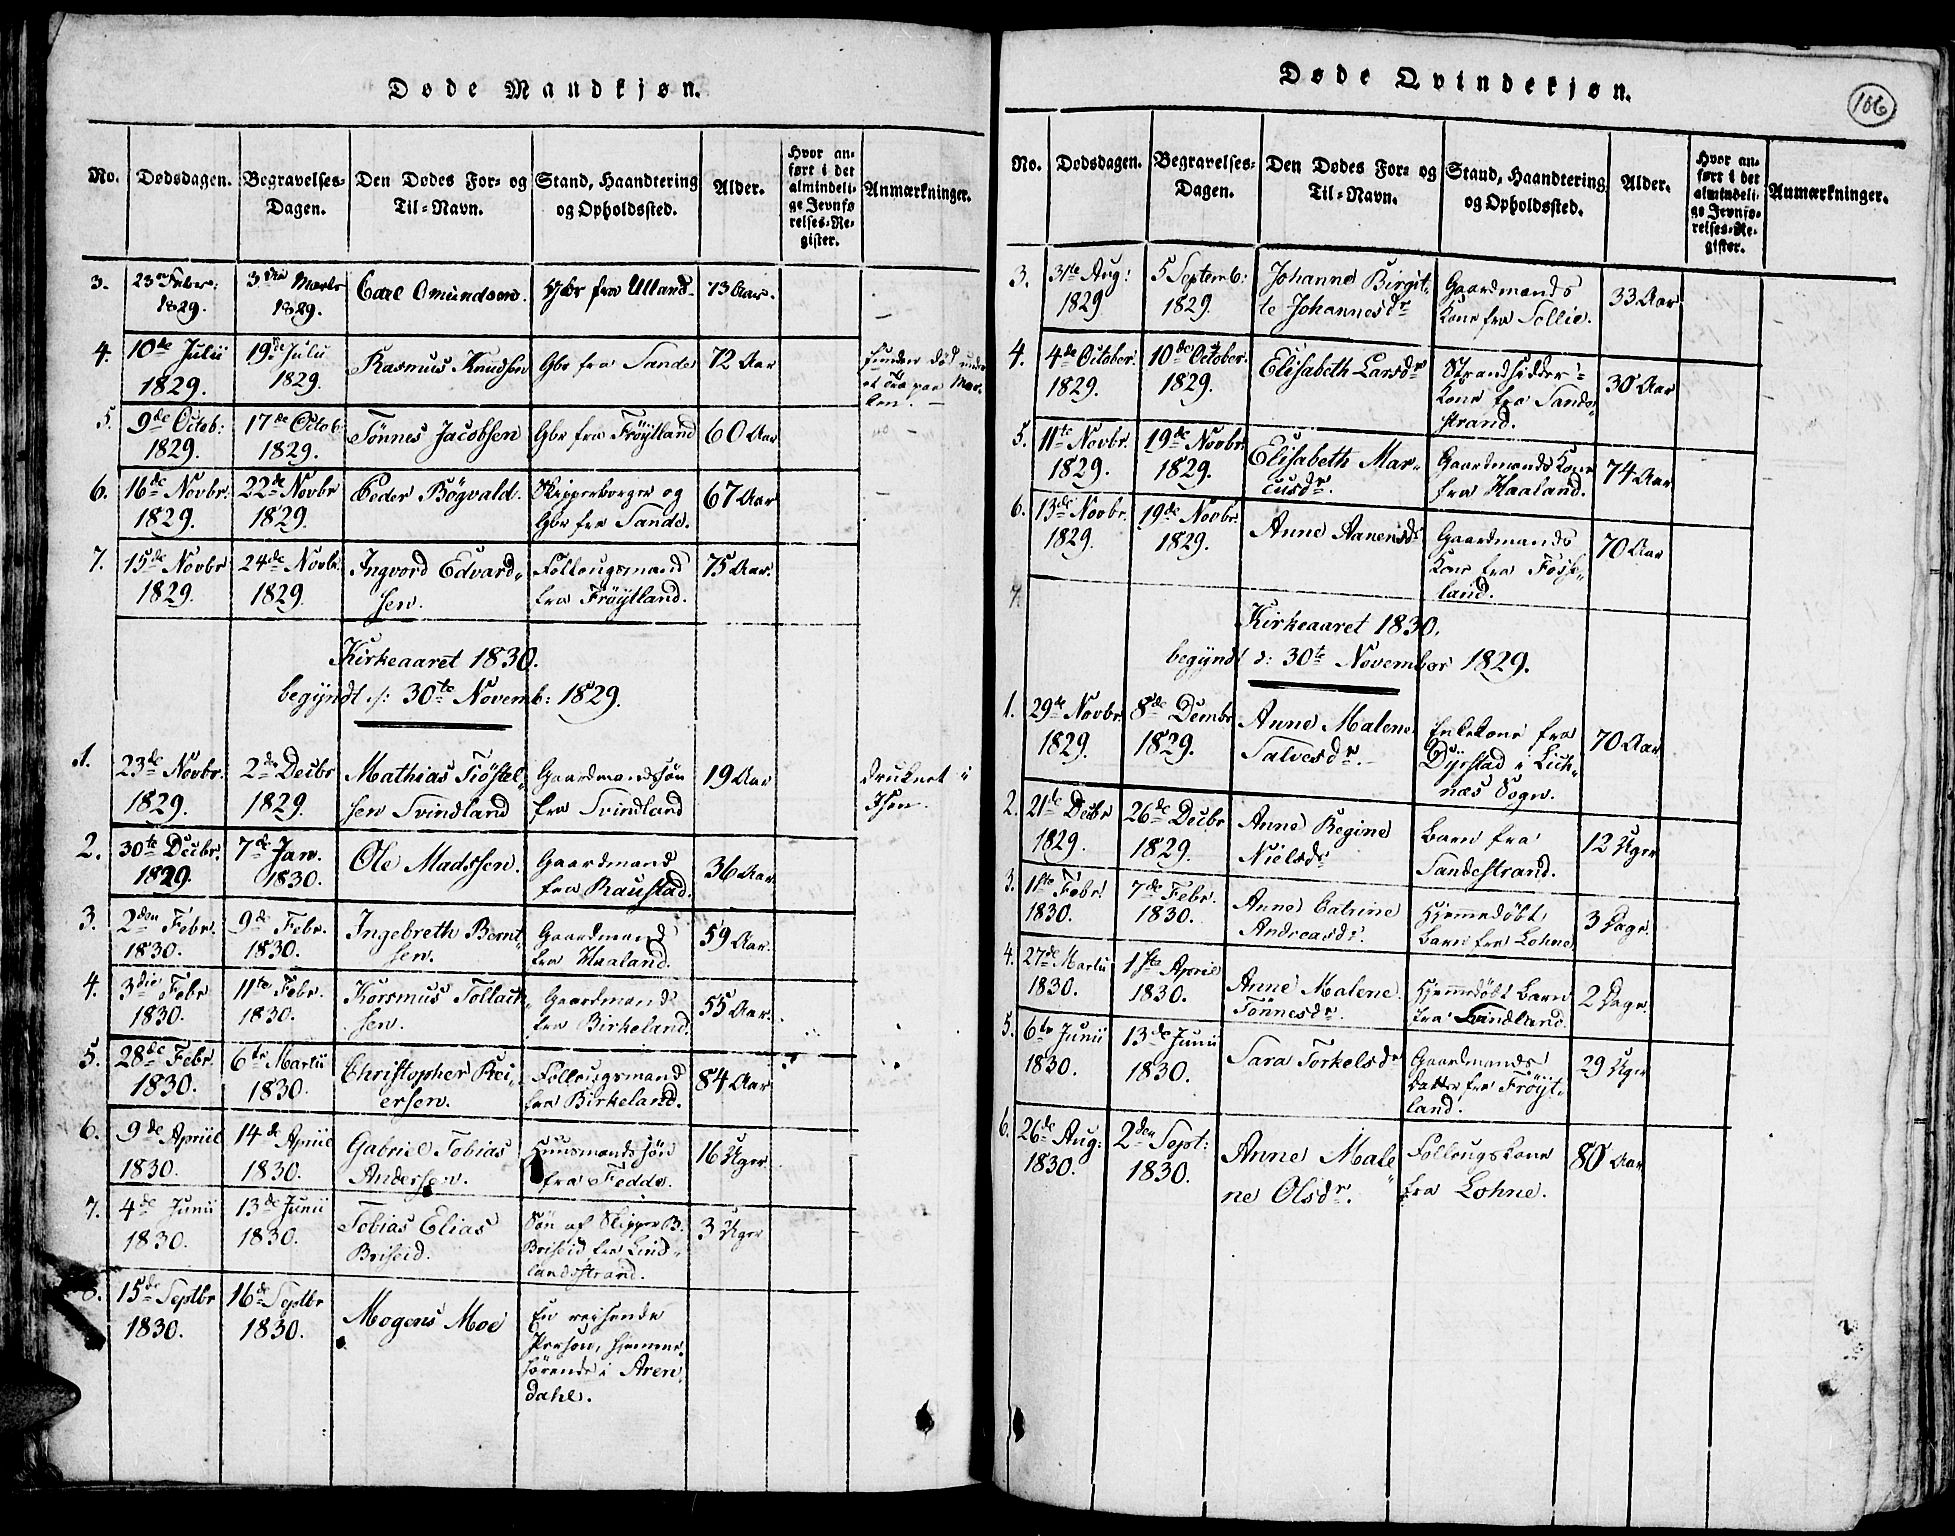 Døde Mandkjøn.
No. Dødsdagen. Begravelses-Dagen. Den Dødes For- og Til-Navn. Stand, Haandtering og Opholdssted. Alder. Hvor anført i det almindelige Jevnførelses-Register. Anmærkninger.
3. 23 Febr: 1829. 3die Marts 1829. Carl Omundsen. Gbr fra Ulland. 73 Aar.
4. 10de Julii 1829. 19de Julii 1829. Rasmus Knudsen Gbr fra Sande 72 Aar funden død under et Træ paa Marken.
5. 9de Octob: 1829. 17de Octob: 1829. Tønnes Jacobsen Gbr fra Frøytland 60 Aar
6. 16de Novbr. 1829. 22de Novbr 1829. Peder Bögvald. Skipperborger og Gbr fra Sande. 67 Aar
7. 15de Novbr 1829. 24de Novbr. 1829. Ingvord Edvardsen. Følleugsmand fra Frøytland. 75 Aar.
Kirkeaaret 1830.
begÿndt d: 30te Novemb: 1829.
1. 23de Novbr. 1829. 2den Decbr 1829. Mathias Tiøstelsen Svindland Gaardmandssøn fra Svindland 19 Aar druknet i Isen.
2. 30te Decbr. 1829. 7de Jan. 1830. Ole Madssen. Gaardmand fra Raustad. 36 Aar
3. 2den Febr. 1830. 9de Febr. 1830. Ingebreth Berntsen. Gaardmand fra Haaland. 59 Aar.
4. 3die Febr 1830. 11te Febr. 1830. Korsmus Tollacksen. Gaardmand fra Birkeland. 55 Aar.
5. 28de Febr. 1830. 6te Martii 1830. Christopher Reiersen. Følleugsmand fra Birkeland. 84 Aar
6. 9de Apriil 1830. 14de Apriil 1830. Gabriel Tobias Andersen. Huusmandssøn fra Fedde. 16 Uger
7. 4de Junii 1830. 13de Junii 1830. Tobias Elias Briseid. Søn af Skipper B. Briseid fra Lindlandsstrand. 3 Uger
8. 15de Septbr 1830. 16de Septbr 1830. Mogens Moe En reisende Person, hjemmehørende i Arendahl.
Døde Qvindekjøn.
106
No. Dødsdagen. Begravelses-Dagen. Den Dødes For- og Til-Navn. Stand, Haandtering og Opholdssted. Alder. Hvor anført i det almindelige Jevnførelses-Register. Anmærkninger.
3. 31te Aug: 1829 5 Septemb: 1829. Johanne Birgitte Johannesdr Gaardmands Kone fra Sollie. 33 Aar
4. 4de October. 1829. 10de October. 1829. Elisabeth Larsdr Strandsidder-Kone fra Sandestrand. 30 Aar
5. 11te Novbr. 1829. 19de Novbr. 1829. Elisabeth Marcusdr. Gaardmands Kone fra Haaland. 74 Aar
6. 13de Novbr. 1829. 19de Novbr. 1829. Anne Aanensdr Gaardmands Kone fra Fosseland. 70 Aar
7.
Kirkeaaret 1830.
begÿndt d: 30te November 1829.
1. 29de Novbr 1829. 8de Decmbr 1829. Anne Malene Salvesdr. Enkekone fra Dÿrstad i Lichnæs Sogn. 70 Aar
2. 21de Decbr 1829. 26de Decbr 1829. Anne Regine Nielsdr Barn fra Sandestrand. 12 Uger
3. 1ste Febr 1830. 7de Febr. 1830. Anne Catrine Andreasdr. Hjemmedøbt Barn fra Lohne 3 Dage.
4. 27de Martii 1830. 1ste April 1830. Anne Malene Tönnesdr. Hjemmedøbt Barn fra Svindland. 2 Dage.
5. 6te Junii 1830. 13de Junii 1830. Sara Torkelsdr Gaardmands Datter fra Frøytland. 29 Uger
6. 26de Aug: 1830. 2den Sept: 1830. Anne Malene Olsdr. Følleugskone fra Lohne. 80 Aar